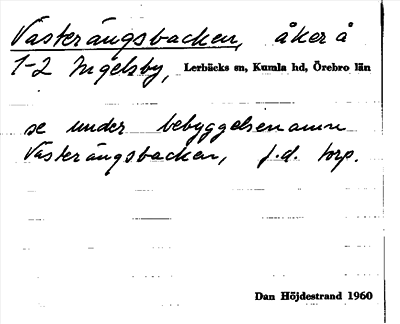 Västerängsbacken, åker å
1-2 Ingelsby, Lerbäcks sn, Kumla hd, Örebro län
se under bebyggelsenamn
Västerängsbacken, f.d. torp.
Dan Höjdestrand 1960